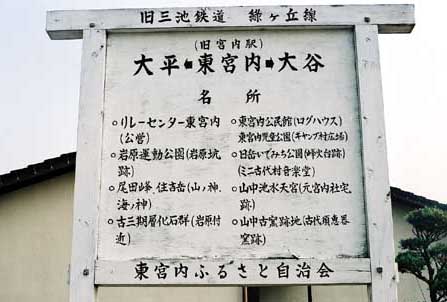 旧三池鉄道 緑ヶ丘線
(旧宮内駅)
大平⬅東宮内➡大谷
名所
○リレーセンター東宮内
(公営)
○岩原運動公園(岩原坑
跡)
○尾田峰 住吉岳(山ノ神.
海ノ神)
○古三期層化石群(岩原村
近)
○東宮内公民館(ログハウス)
東宮内児童公園(キャンプ村広場)
○旧岳いでみち公園(峰火台跡)
(ミニ古代村音楽堂)
○山中池水天宮(元宮内社宅
跡)
○山中古窯跡地(古代須恵器
窯跡)
東宮内ふるさと自治会